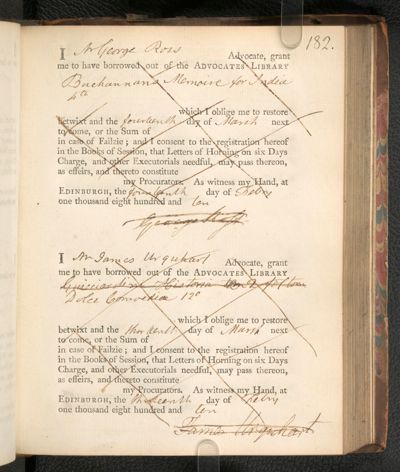 182.
I Mr George Ross Advocate, grant
me to have borrowed out of the ADVOCATES LIBRARY
Buchannans Memoire for India
4to
which I oblige me to restore
betwixt and the fourteenth day of March next
to come, or the Sum of
in case of Failzie; and I consent to the registration hereof
in the Books of Session, that Letters of Horning on six Days
Charge, and other Executorials needful, may pass thereon,
as effeirs, and thereto constitute
my Procurators. As witness my Hand, at
EDINBURGH, the fourteenth day of Febry
one thousand eight hundred and ten
George Ross
I Mr James Urquhart Advocate, grant
me to have borrowed out of the ADVOCATES LIBRARY
Historia
Dolce Comoedia 12o
which I oblige me to restore
betwixt and the day of March next
to come, or the Sum of
in case of Failzie; and I consent to the registration hereof
in the Books of Session, that Letters of Horning on six Days
Charge, and other Executorials needful, may pass thereon,
as effeirs, and thereto constitute
my Procurators. As witness my Hand, at
EDINBURGH, the day of Febry
one thousand eight hundred and ten
James Urquhart